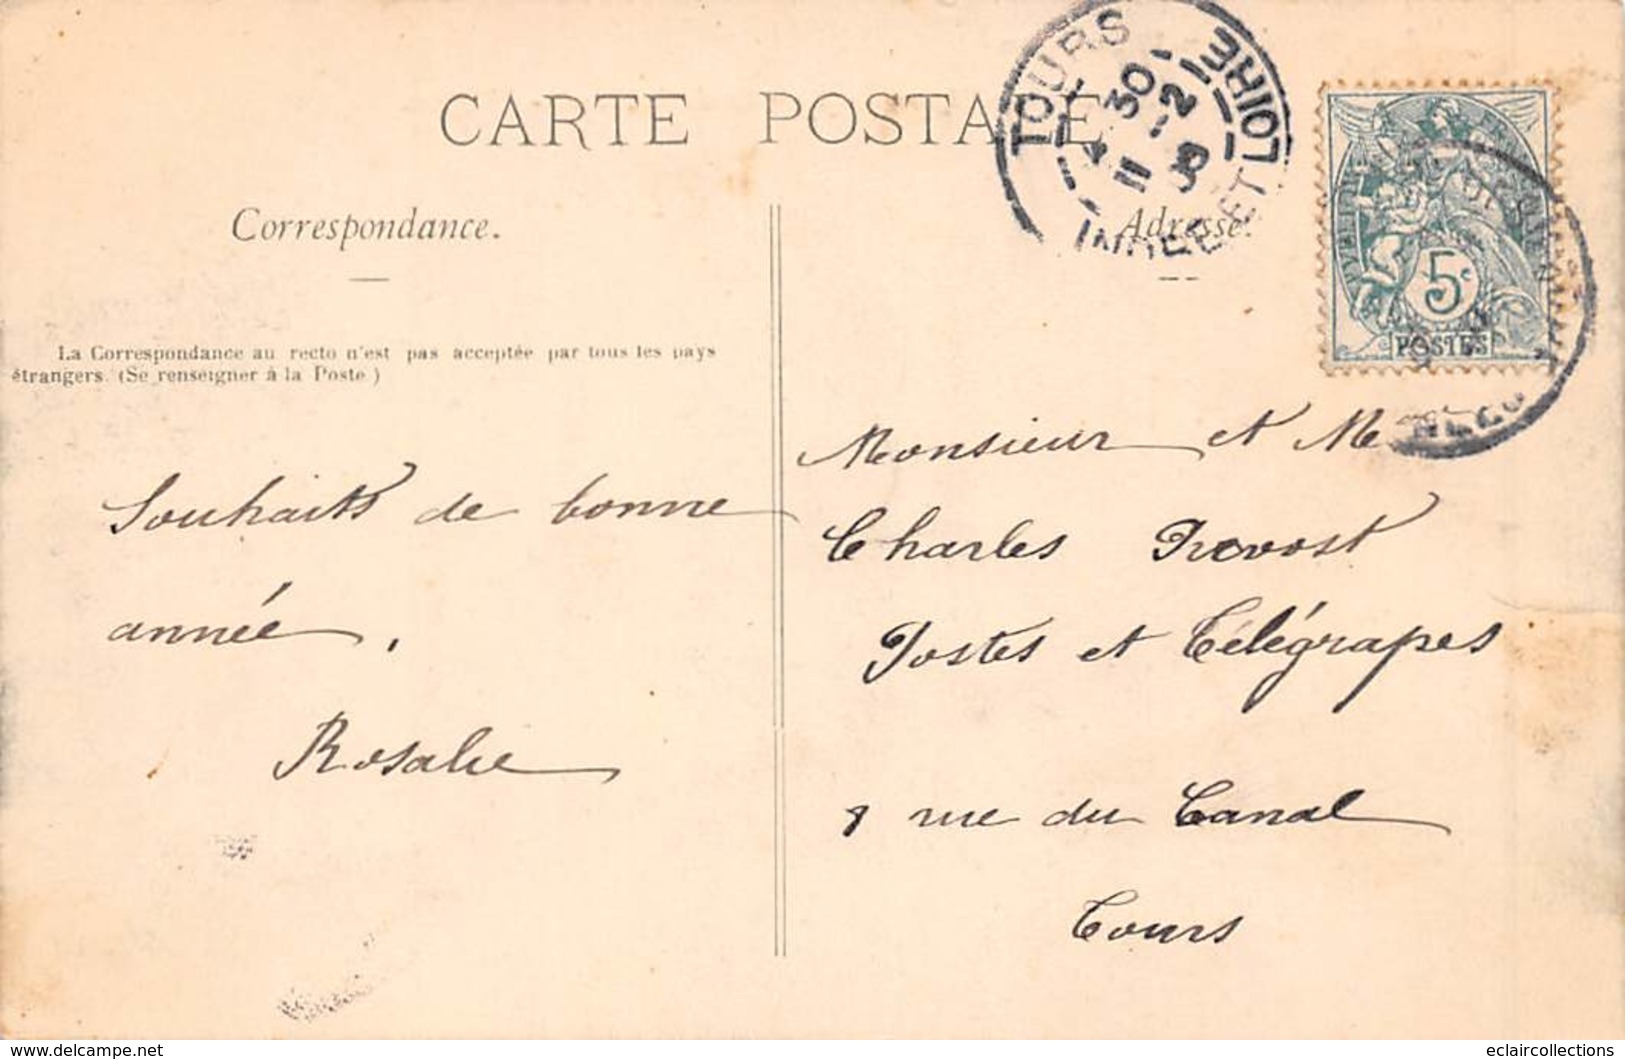 CARTE POSTALE
TOURS
INDRE ET LOIRE
30
12
11
Correspondance.
Adresse.
5c
POSTES
La Correspondance au recto n'est pas acceptée par tous les pays
étrangers. (Se renseigner à la Poste)
Souhaits de bonne
année,
Rosalie
Monsieur et M
Charles Prevost
Postes et Télégrapes
8 rue du Canal
Tours
www.delcampe.net
eclaircollections